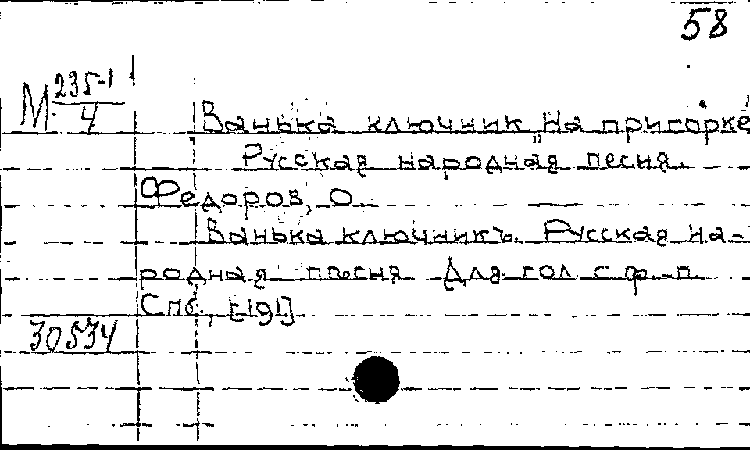 58
М 235-1/4
Ванька ключник „На пригорке
Русская народная песня.
Федоров, О.
Ванька ключникъ. Русская на-
родная песня. Для гол. с ф.-п.
Спб., [191]
30534